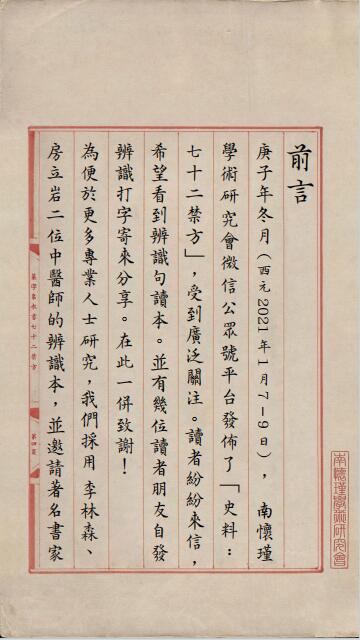 前言
庚子年冬月（西元2021年1月7－9日），南懷瑾
學術研究會微信公眾號平台發佈了「史料：
七十二禁方」，受到廣泛關注。讀者紛紛來信，
希望看到辨識句讀本。並有幾位讀者朋友自發
辨識打字寄來分享。在此一併致謝！
為便於更多專業人士研究，我們採用李林森、
房立岩二位中醫師的辨識本，並邀請著名書家
南懷瑾學術研究會